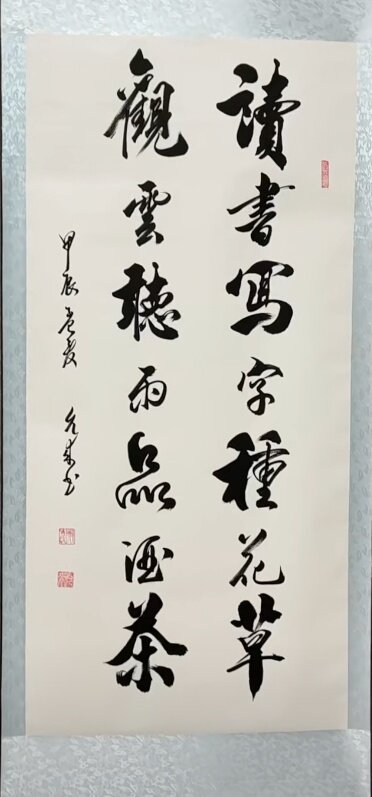 讀書寫字種花草
觀雲聽雨品酒茶
甲辰
書